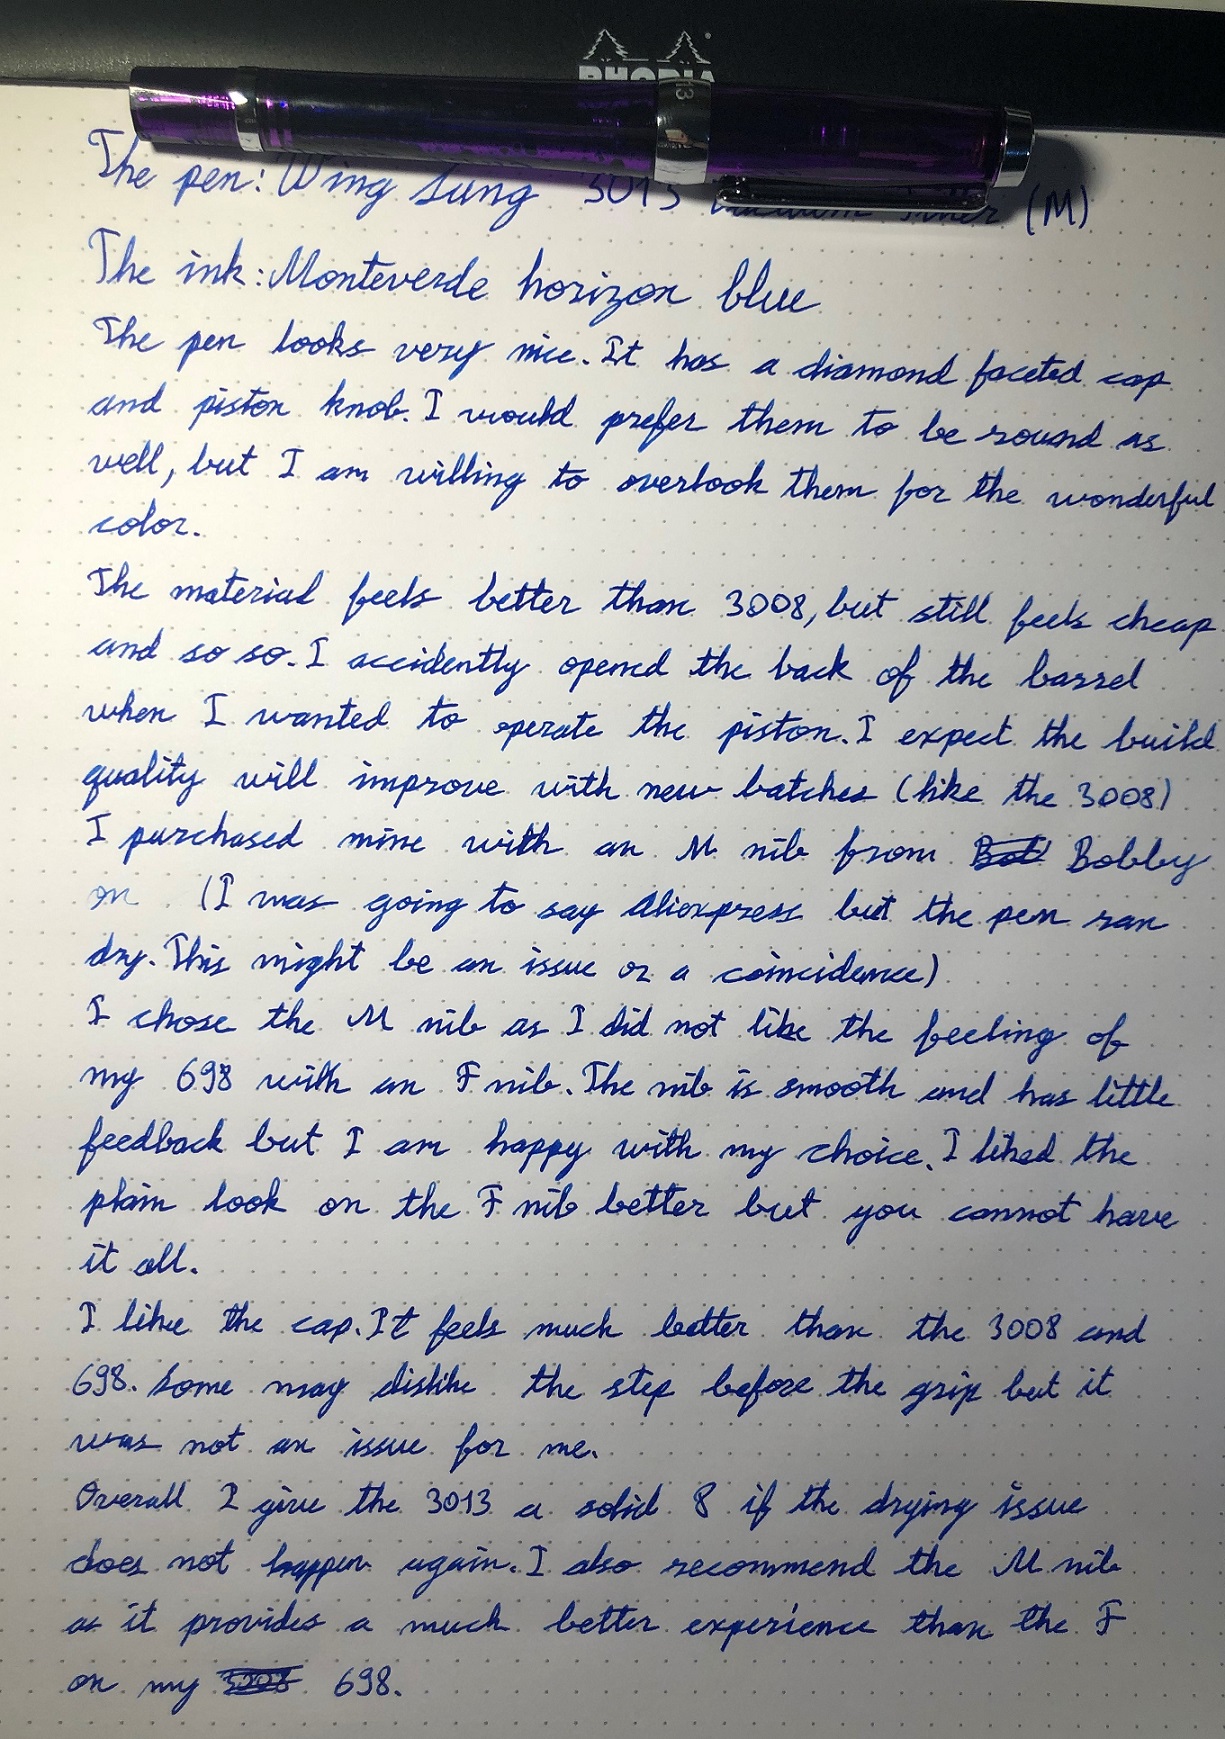 RHODIA
13
The pen: Wing Sung 3013 vacuum filler (M)
The ink: Monteverde horizon blue
The pen looks very nice. It has a diamond faceted cap
and piston knob. I would prefer them to be round as
well, but I am willing to overlook them for the wonderful
color.
The material feels better than 3008, but still feels cheap
and so so. I accidently opened the back of the barrel
when I wanted to operate the piston. I expect the build
quality will improve with new batches (like the 3008)
I purchased mine with an M nib from Bob Bobby
on (I was going to say Aliexpress but the pen ran
dry. This might be an issue or a coincidence)
I chose the M nib as I did not like the feeling of
my 698 with an F nib. The nib is smooth and has little
feedback but I am happy with my choice. I liked the
plain look on the F nib better but you cannot have
it all.
I like the cap. It feels much better than the 3008 and
698. Some may dislike the step before the grip but it
was not an issue for me.
Overall I give the 3013 a solid 8 if the drying issue
does not happen again. I also recommend the M nib
as it provides a much better experience than the F
on my 3008 698.